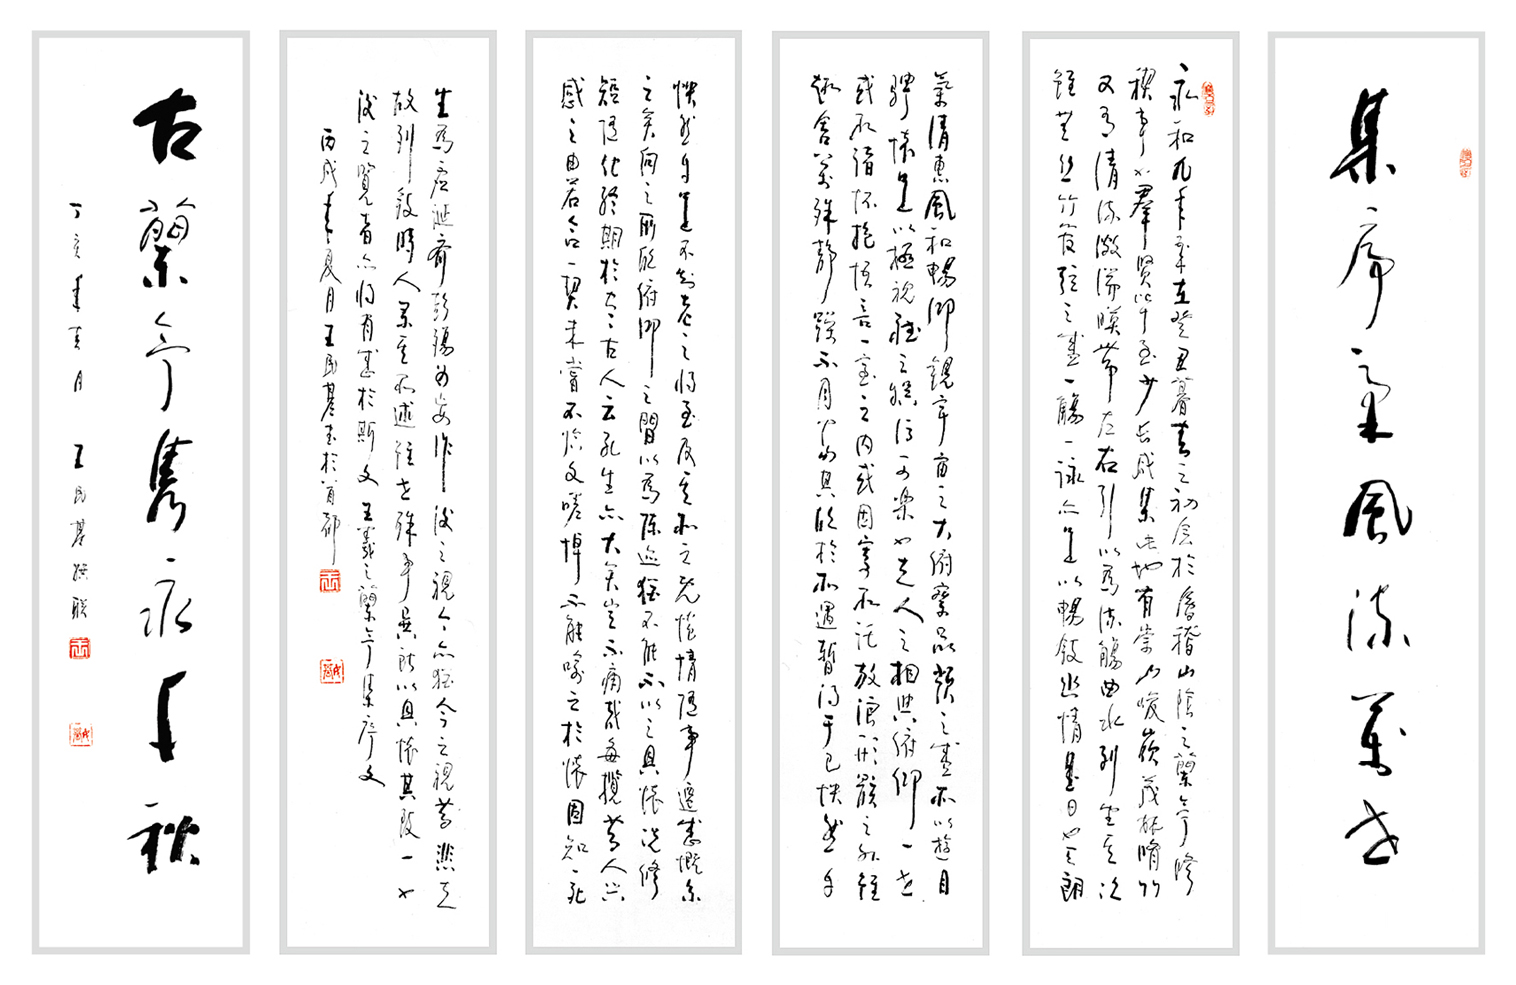 集序風流萬世
永和九年歲在癸丑暮春之初會於會稽山陰之蘭亭修
禊事也羣賢畢至少長咸集此地有崇山峻嶺茂林脩竹
又有清流激湍映帶左右引以為流觴曲水列坐其次
雖無絲竹管弦之盛一觴一詠亦足以暢敘幽情是日也天朗
氣清惠風和暢仰觀宇宙之大俯察品類之盛所以遊目
騁懷足以極視聽之娛信可樂也夫人之相與俯仰一世
或取諸懷抱悟言一室之內或因寄所託放浪形骸之外雖
趣舍萬殊靜躁不同當其欣於所遇暫得于己快然自
快然自足不知老之將至及其所之既倦情隨事遷感慨係
之矣向之所欣俯仰之間以為陳迹猶不能不以之興懷況修
短隨化終期於盡古人云死生亦大矣豈不痛哉每攬昔人興
感之由若合一契未嘗不臨文嗟悼不能喻之於懷固知一死
生為虛誕齊彭殤為妄作後之視今亦猶今之視昔悲夫
故列敘時人錄其所述雖世殊事異所以興懷其致一也
後之覽者亦將有感於斯文 王羲之蘭亭集序文
丙戌年夏月王民基書於首都
古蘭亭雋永千秋
丁亥年 月 王民基撰聯